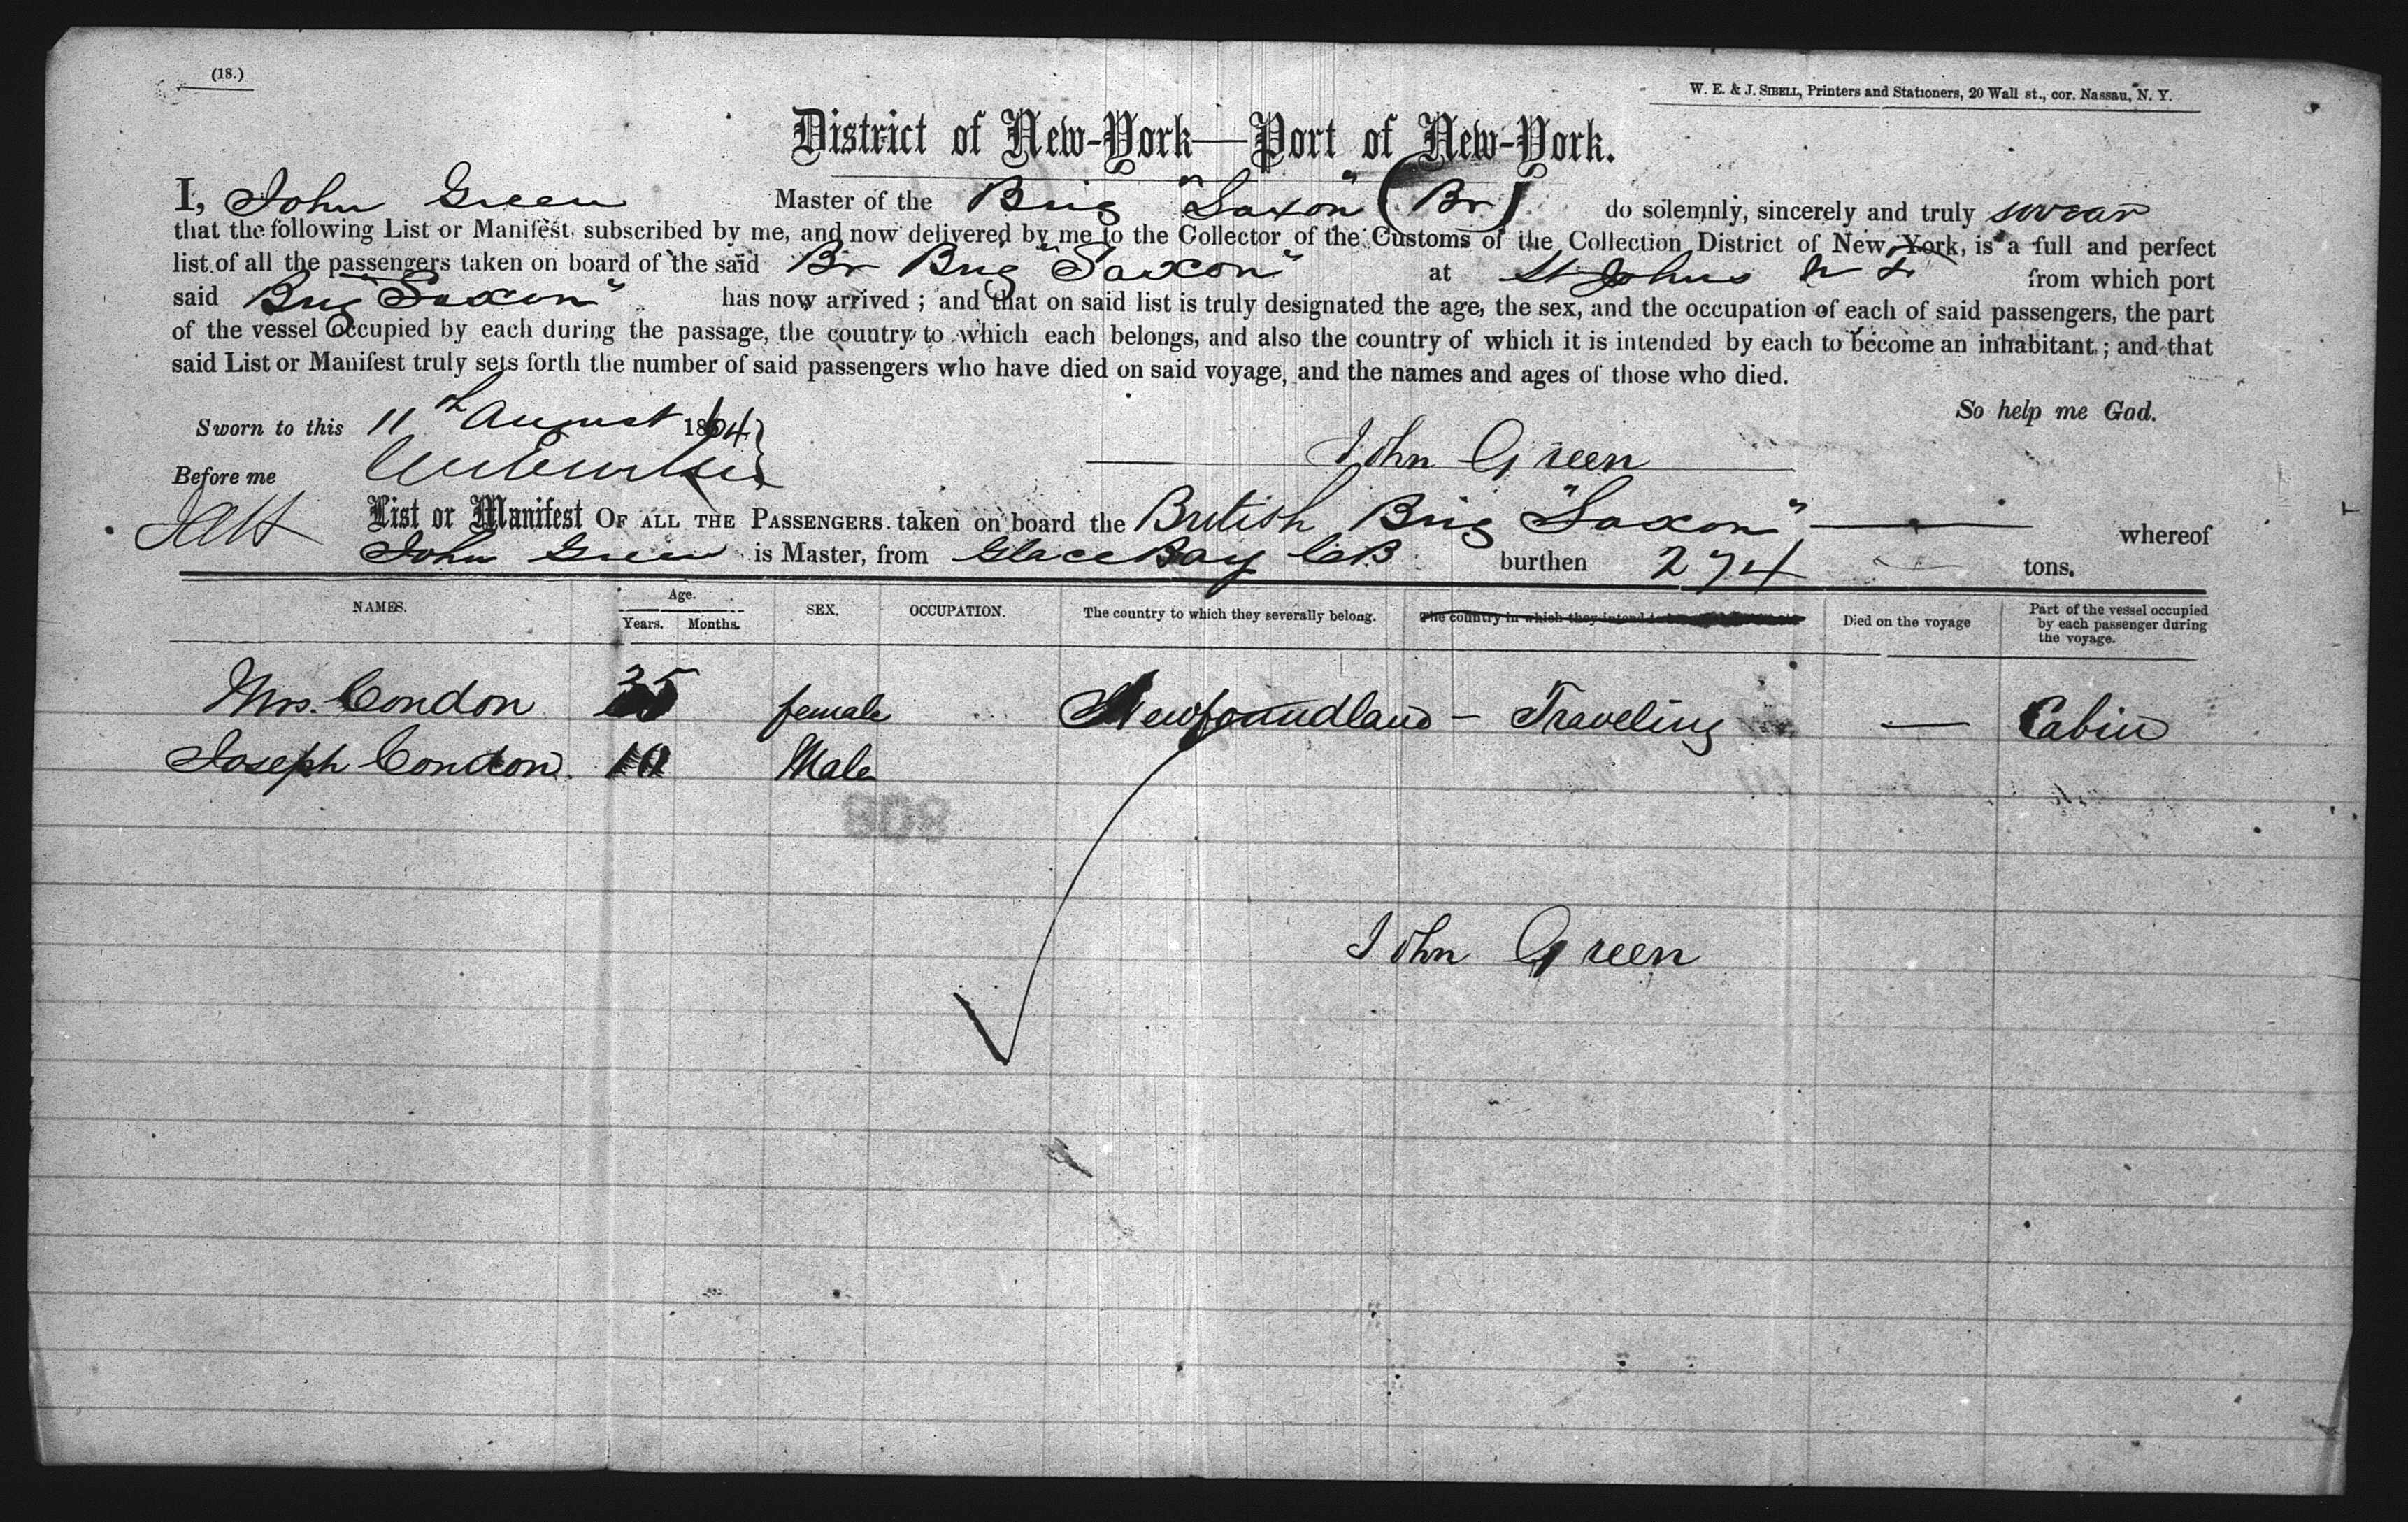 (18.)
W. E. & J. SIBELL, Printers and Stationers, 20 Wall st., cor. Nassau, N. Y.
District of New-York—Port of New-York.
I, John Green Master of the Brig "Saxon" (Br) do solemnly, sincerely and truly swear
that the following List or Manifest, subscribed by me, and now delivered by me to the Collector of the Customs of the Collection District of New York, is a full and perfect
list of all the passengers taken on board of the said Br Brig "Saxon" at St Johns N F from which port
said Brig "Saxon" has now arrived; and that on said list is truly designated the age, the sex, and the occupation of each of said passengers, the part
of the vessel occupied by each during the passage, the country to which each belongs, and also the country of which it is intended by each to become an inhabitant; and that
said List or Manifest truly sets forth the number of said passengers who have died on said voyage, and the names and ages of those who died.
So help me God.
Sworn to this 11th August 1864
John Green
Before me
List or Manifest OF ALL THE PASSENGERS taken on board the British Brig "Saxon" whereof
John Green is Master, from Glace Bay CB burthen 274 tons.
NAMES. Age. Years. Months. SEX. OCCUPATION. The country to which they severally belong. The country in which they intend to Died on the voyage Part of the vessel occupied by each passenger during the voyage.
Mrs. Condon 35 female Newfoundland - Traveling — Cabin
Joseph Condon. 10 Male
808
John Green